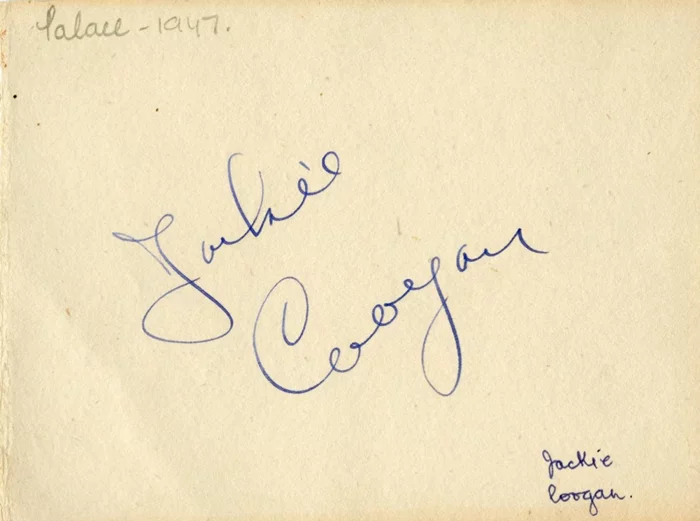 Palace - 1947.
Jackie
Coogan
Jackie
Coogan.